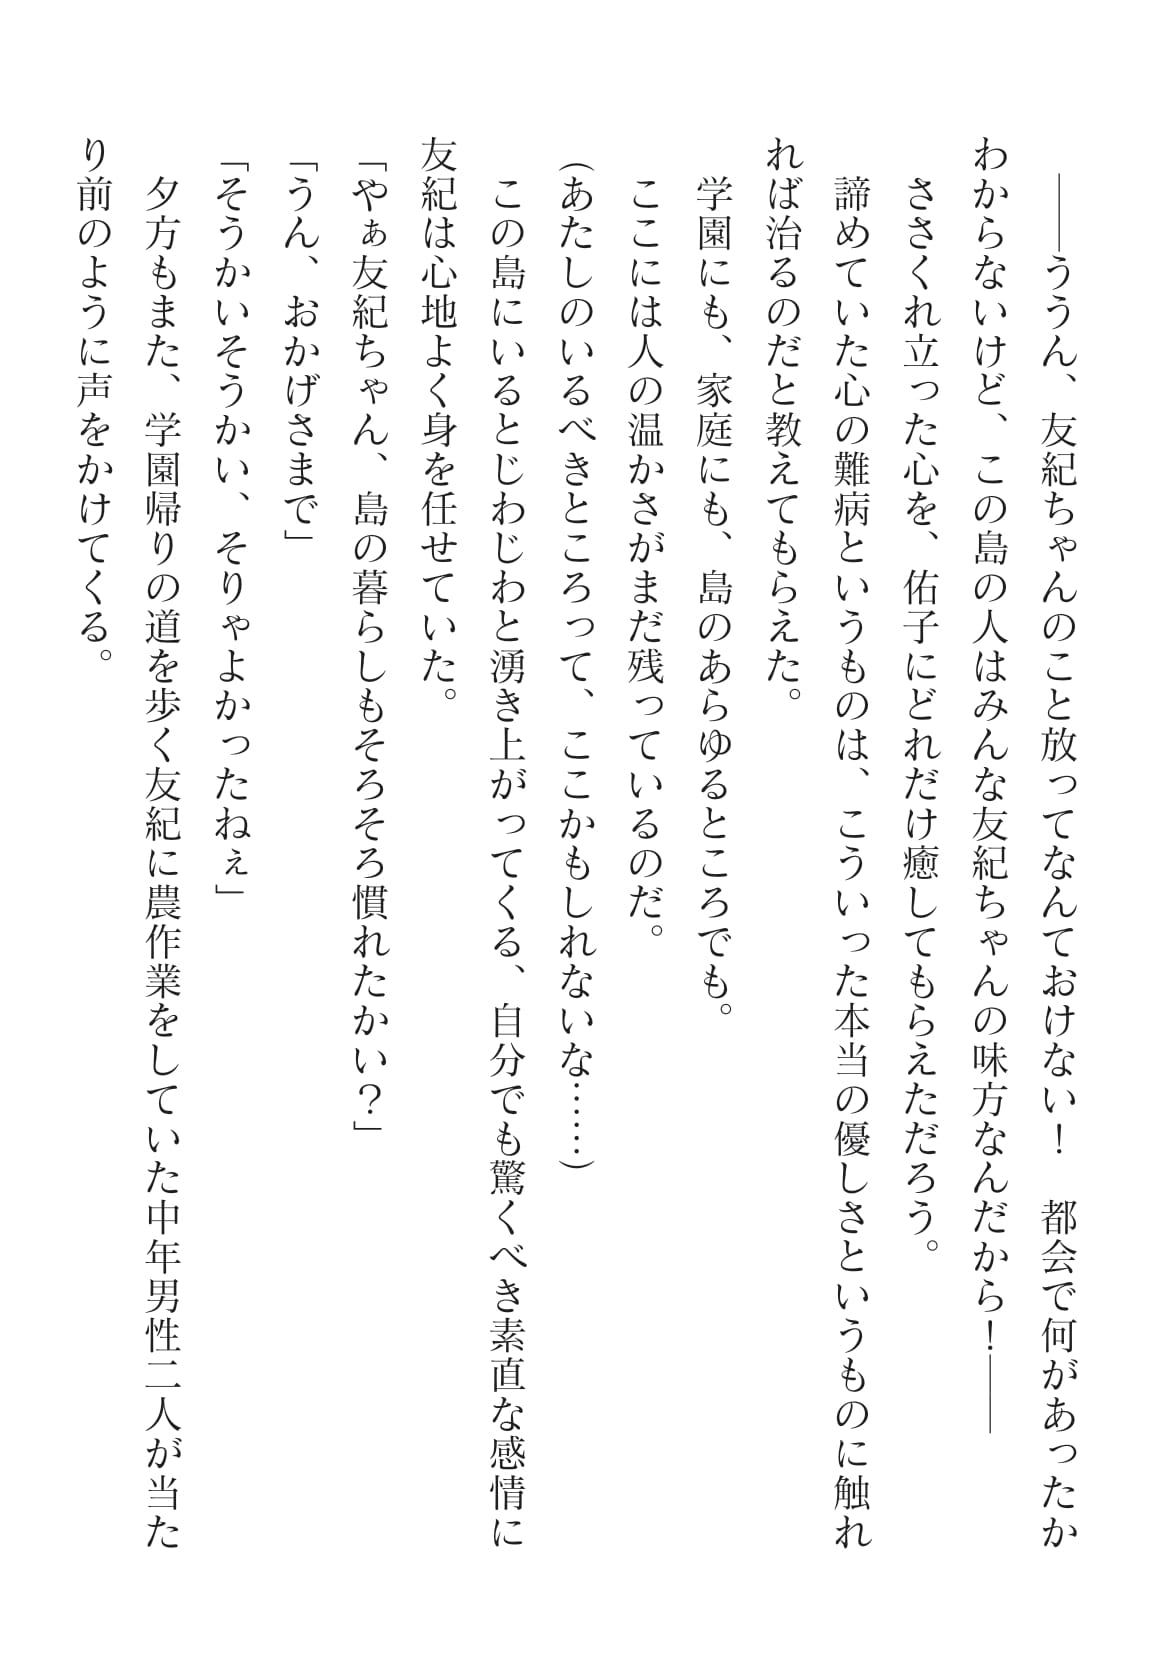 ――ううん、友紀ちゃんのこと放ってなんておけない！　都会で何があったか
わからないけど、この島の人はみんな友紀ちゃんの味方なんだから！――
　ささくれ立った心を、佑子にどれだけ癒してもらえただろう。
　諦めていた心の難病というものは、こういった本当の優しさというものに触れ
れば治るのだと教えてもらえた。
　学園にも、家庭にも、島のあらゆるところでも。
　ここには人の温かさがまだ残っているのだ。
（あたしのいるべきところって、ここかもしれないな……）
　この島にいるとじわじわと湧き上がってくる、自分でも驚くべき素直な感情に
友紀は心地よく身を任せていた。
「やぁ友紀ちゃん、島の暮らしもそろそろ慣れたかい？」
「うん、おかげさまで」
「そうかいそうかい、そりゃよかったねぇ」
　夕方もまた、学園帰りの道を歩く友紀に農作業をしていた中年男性二人が当た
り前のように声をかけてくる。